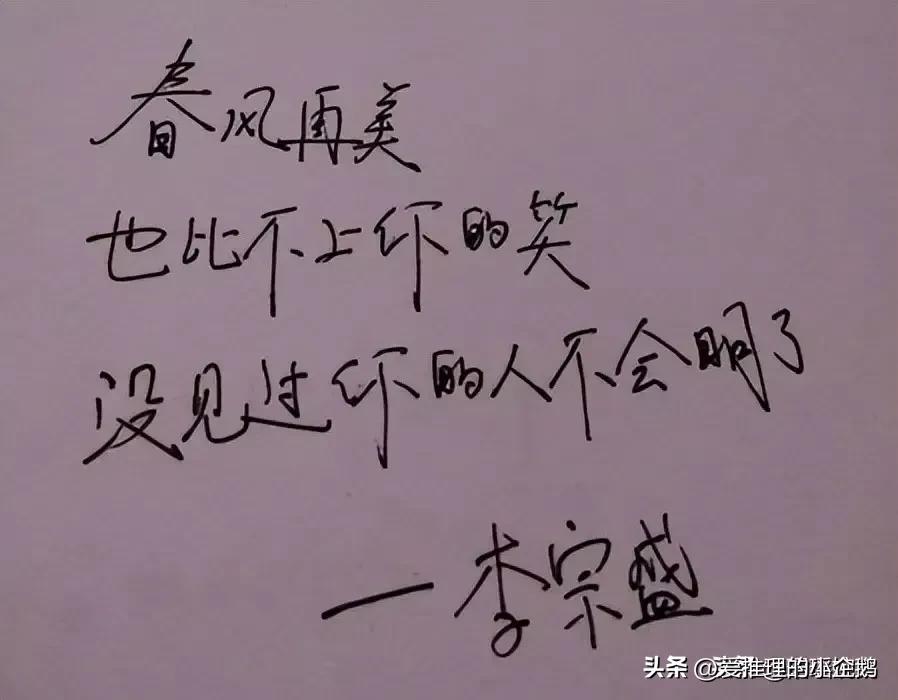 春风再美
也比不上你的笑
没见过你的人不会明了
—李宗盛
头条 @爱推理的小企鹅